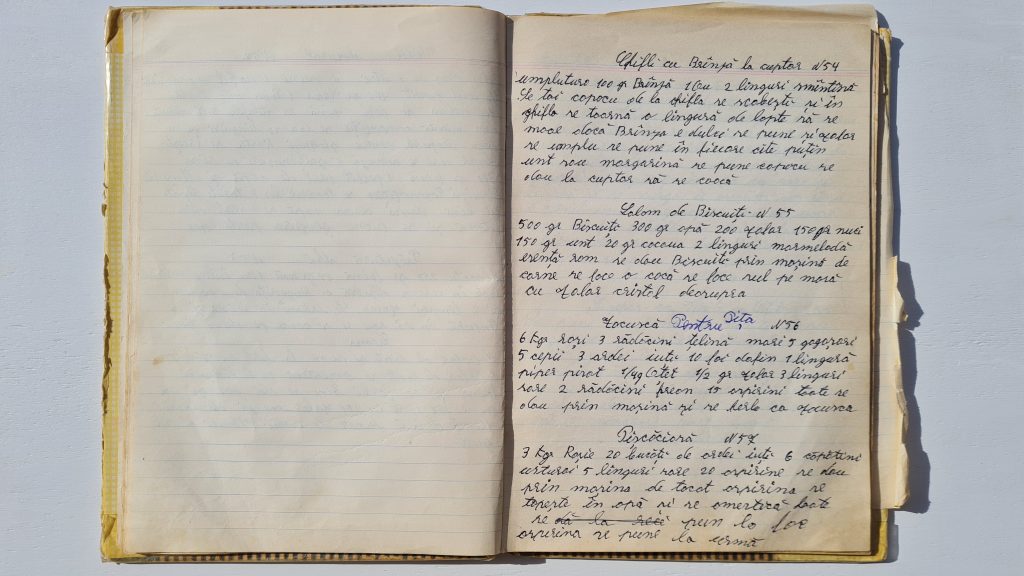 Chifli cu Brînză la cuptor N54
umplutura 100 gr Brînză 1 Ou 2 linguri smîntînă
Se tai capacu de la chifla se scobește și în
chifla se toarnă o lingură de lapte să se
moaie dacă Brînza e dulci se pune și zahar
se umplu se pune în fiecare cîte puțin
unt sau margarină se pune capacu se
dau la cuptor să se coacă
Salam de Biscuiți N 55
500 gr Biscuiți 300 gr apă 200 zahar 150 gr nuci
150 gr unt 20 gr cacaua 2 linguri marmeladă
esență rom se dau Biscuiți prin mașină de
carne se face o cocă se face sul pe masă
cu zahar cristal deasupra
Zacuscă Pentru Pița N56
6 Kgr roși 3 rădăcini țelină mari 5 gogoșari
5 cepii 3 ardei iuti 10 foi dafin 1 lingură
piper pisat 1/4 oțet 1/2 gr zahar 3 linguri
sare 2 rădăcini hrean 15 aspirini toate se
dau prin mașină și se herb ca zacusca
Pișcăcioasă N57
3 Kgr Roșie 20 bucăti de ardei iuti 6 căpătîni
usturoi 5 linguri sare 20 aspirine se dau
prin mașina de tocat aspirina se
topește în apă și se amestică toate
se dă la rece pun la foc
aspirina se pune la urmă